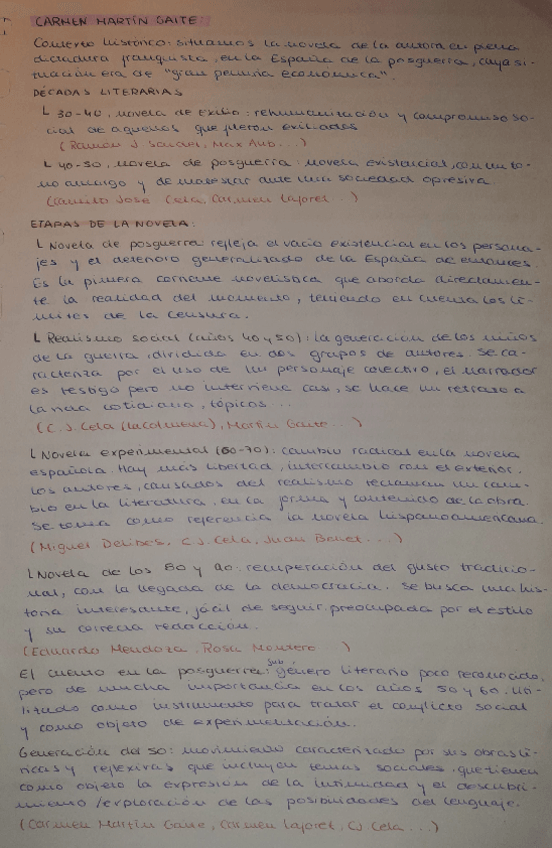 CARMEN MARTÍN GAITE:
Contexto histórico: situamos la novela de la autora en plena
dictadura franquista, en la España de la posguerra, cuya si-
tuación era de "gran penuria económica".
DÉCADAS LITERARIAS
↳ 30-40, novela de exilio: rehumanización y compromiso so-
cial de aquellos que fueron exiliados
(Ramón J. Sender, Max Aub...)
↳ 40-50, novela de posguerra: novela existencial, con un to-
no amargo y de malestar ante una sociedad opresiva.
(Camilo José Cela, Carmen Laforet...)
ETAPAS DE LA NOVELA:
↳ Novela de posguerra: refleja el vacío existencial en los persona-
jes y el deterioro generalizado de la España de entonces.
Es la primera corriente novelística que aborda directamen-
te la realidad del momento, teniendo en cuenta los lí-
mites de la censura.
↳ Realismo social (años 40 y 50): la generación de los niños
de la guerra, dividida en dos grupos de autores. Se ca-
racteriza por el uso de un personaje colectivo, el narrador
es testigo pero no interviene casi, se hace un retraso a
la vida cotidiana, tópicos...
(C.J. Cela (La colmena), Martín Gaite...)
↳ Novela experimental (60-70): cambio radical en la novela
española. Hay más libertad, intercambio con el exterior.
Los autores, cansados del realismo reclaman un cam-
bio en la literatura, en la forma y contenido de la obra.
Se toma como referencia la novela hispanoamericana.
(Miguel Delibes, C.J. Cela, Juan Benet...)
↳ Novela de los 80 y 90: recuperación del gusto tradicio-
nal, con la llegada de la democracia. Se busca una his-
toria interesante, fácil de seguir, preocupada por el estilo
y su correcta redacción.
(Eduardo Mendoza, Rosa Montero...)
El cuento en la posguerra: subgénero literario poco reconocido,
pero de mucha importancia en los años 50 y 60. Uti-
lizado como instrumento para tratar el conflicto social
y como objeto de experimentación.
Generación del 50: movimiento caracterizado por sus obras lí-
ricas y reflexivas que incluyen temas sociales, que tienen
como objeto la expresión de la intimidad y el descubri-
miento/exploración de las posibilidades del lenguaje.
(Carmen Martín Gaite, Carmen Laforet, CJ. Cela...)